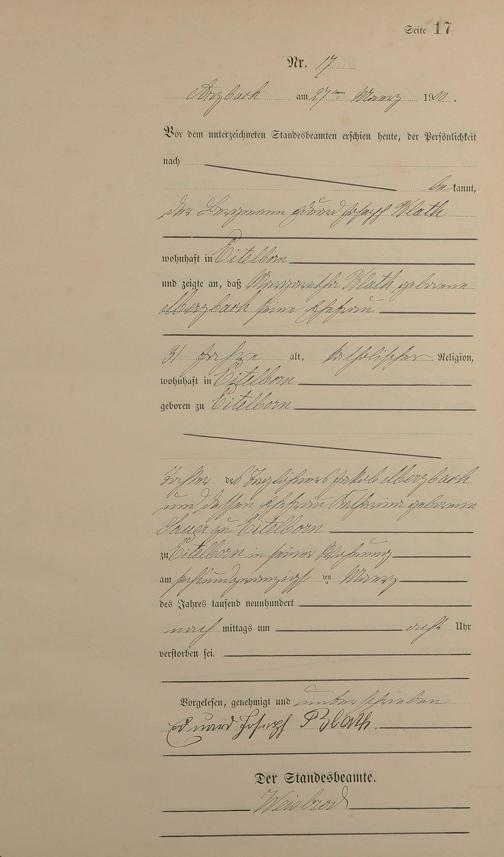 Seite 17
Nr. 17
Arzbach am 27ten Maerz 1900.
Vor dem unterzeichneten Standesbeamten erschien heute, der Persönlichkeit
nach
bekannt,
der Bergmann Eduard Joseph Blath
wohnhaft in Eitelborn
und zeigte an, daß Margaretha Blath geborene
seine Ehefrau
31 Jahre alt, katholischer Religion,
wohnhaft in Eitelborn
geboren zu Eitelborn
Tochter des Taglöhners Jakob
und dessen Ehefrau Katharina geborene
zu Eitelborn
zu Eitelborn in seiner Wohnung
am sechsundzwanzigsten Maerz
des Jahres tausend neunhundert
nach mittags um acht Uhr
verstorben sei.
Vorgelesen, genehmigt und unterschrieben
Eduard Joseph Blath.
Der Standesbeamte.
Weisbrod